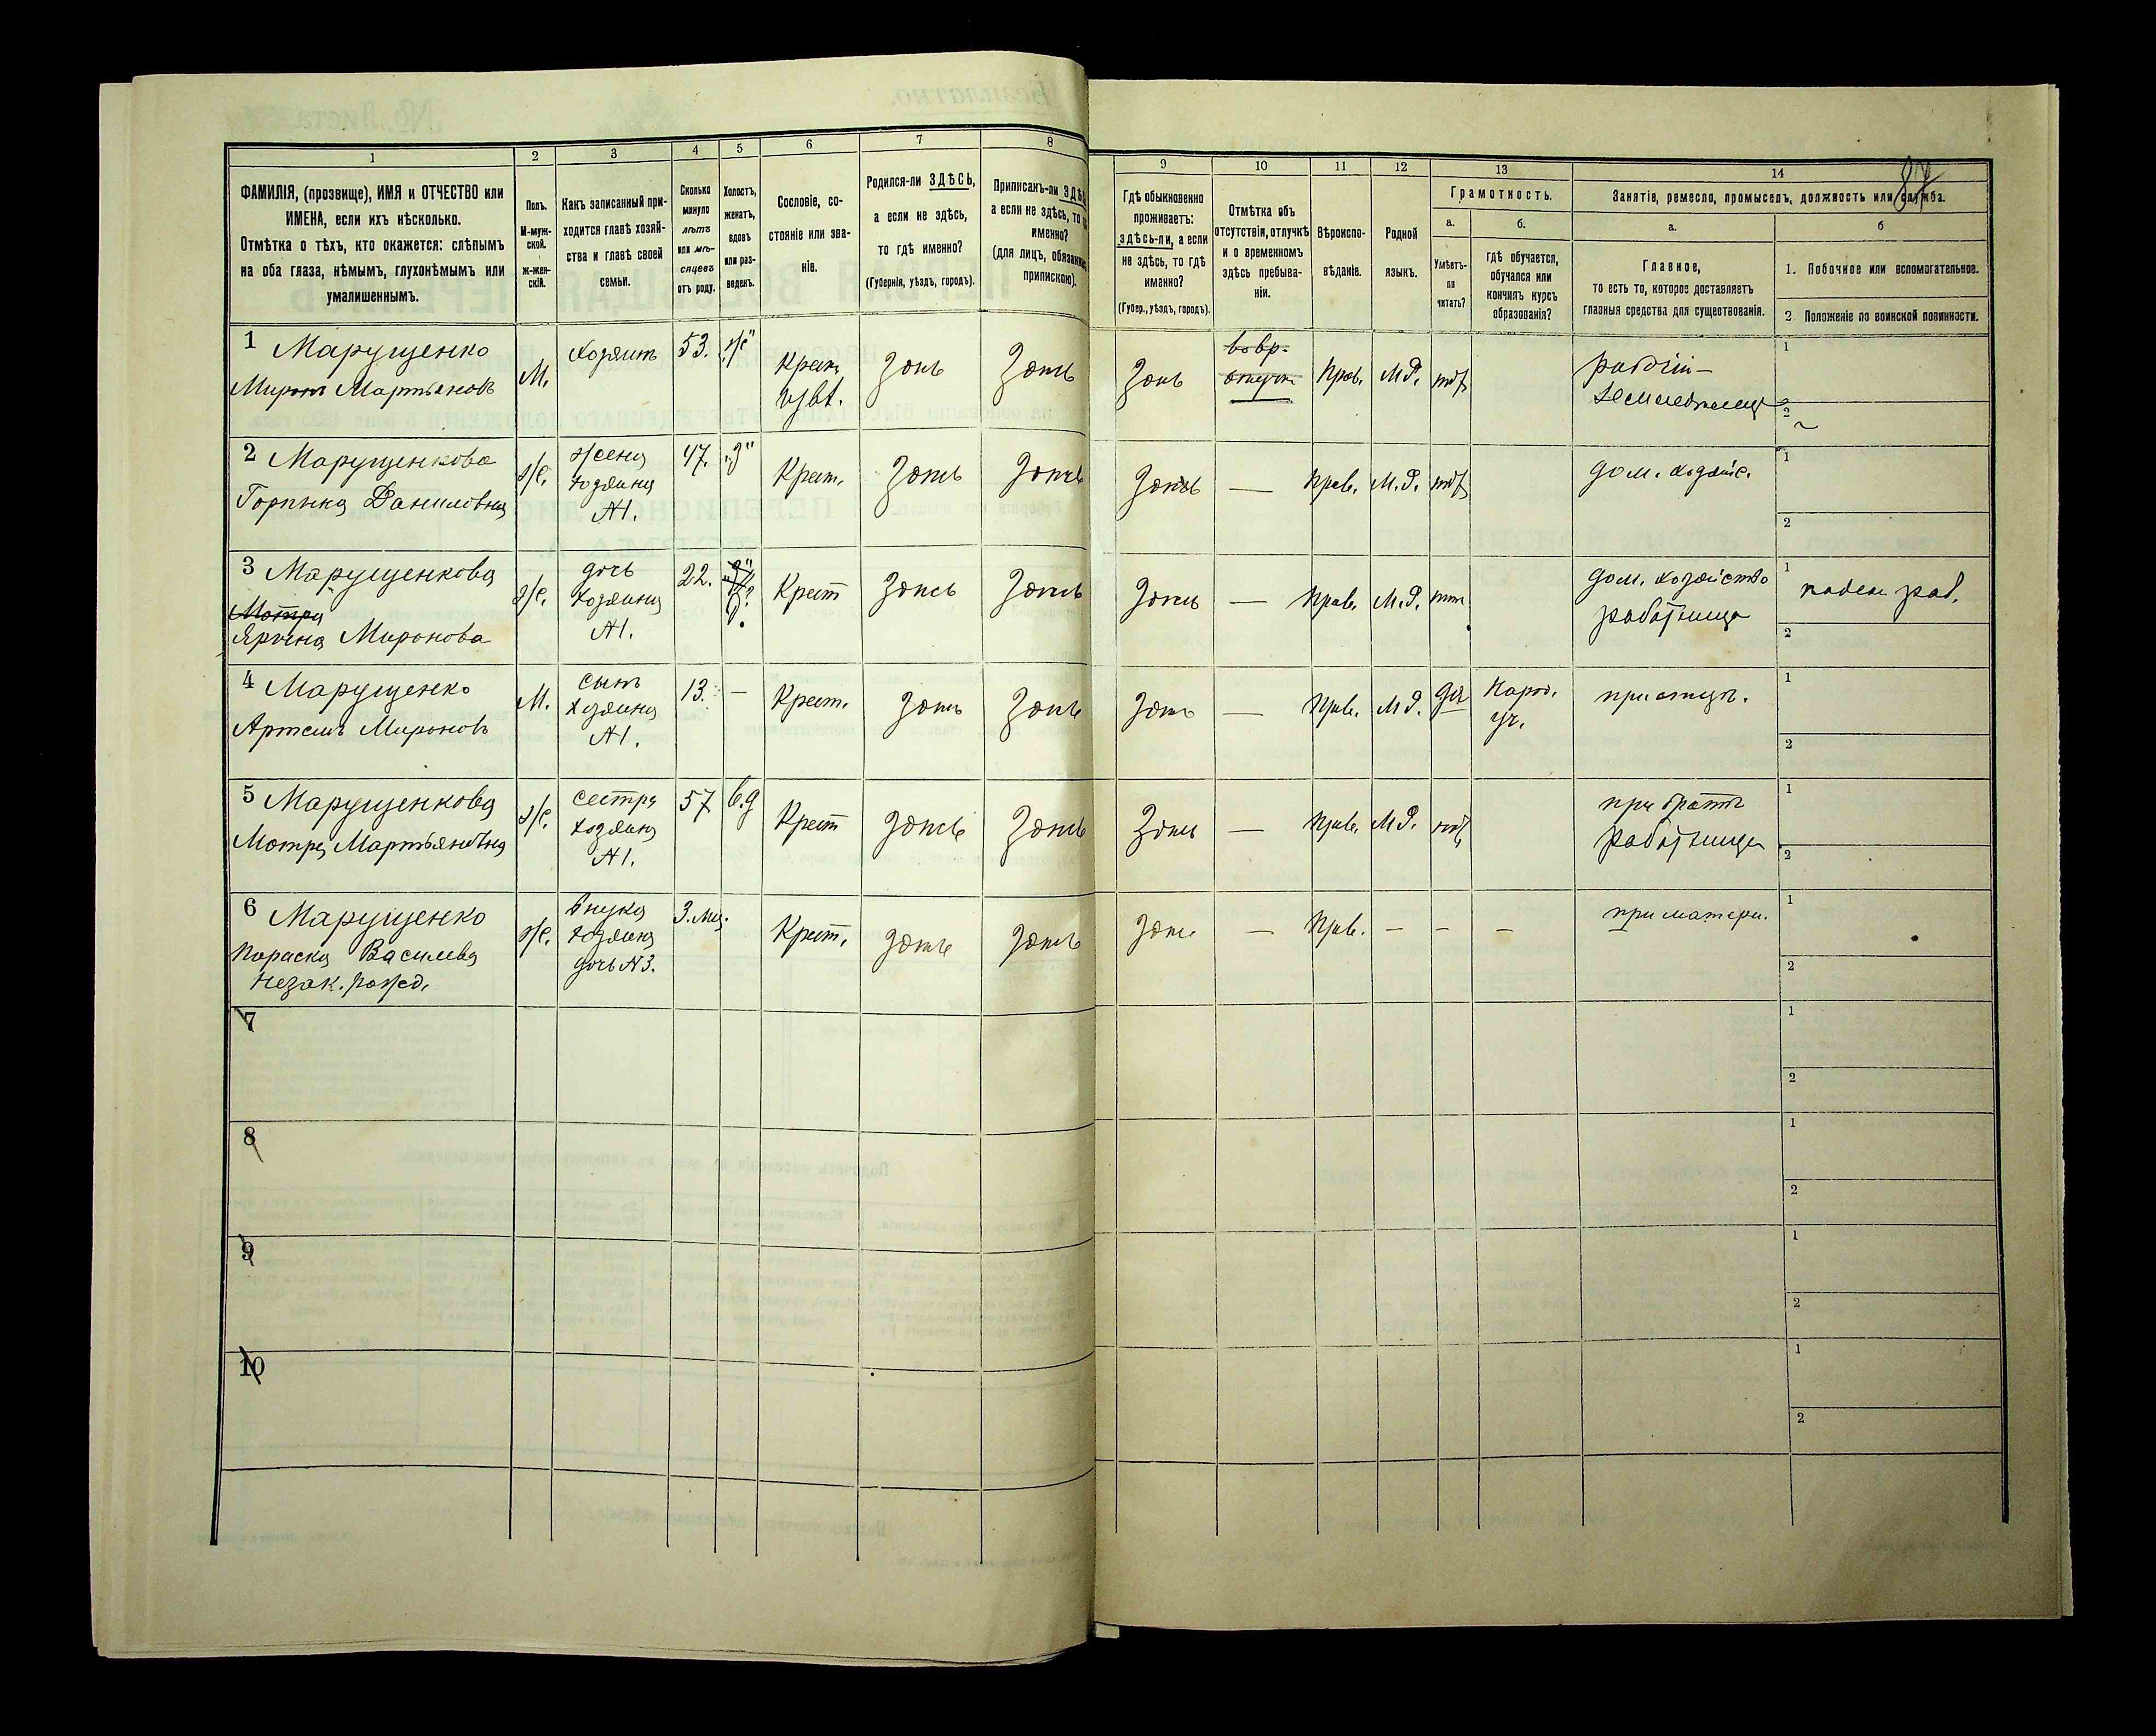 1
2
3
4
5
6
7
8
ФАМИЛІЯ, (прозвище), ИМЯ и ОТЧЕСТВО или
ИМЕНА, если ихъ нѣсколько.
Отмѣтка о тѣхъ, кто окажется: слѣпымъ
на оба глаза, нѣмымъ, глухонѣмымъ или
умалишеннымъ.
Полъ.
М-муж-
ской.
ж-жен-
скій.
Какъ записанный при-
ходится главѣ хозяй-
ства и главѣ своей
семьи.
Сколько
минуло
лѣтъ
или мѣ-
сяцевъ
отъ роду.
Холостъ,
женатъ,
вдовъ
или раз-
веденъ.
Сословіе, со-
стояніе или зва-
ніе.
Родился-ли ЗДѢСЬ,
а если не здѣсь,
то гдѣ именно?
(Губернія, уѣздъ, городъ).
Приписанъ-ли
а если не здѣсь, то
именно?
(для лицъ,
припискою).
9
10
11
12
13
14
87
Гдѣ обыкновенно
проживаетъ:
здѣсь-ли, а если
не здѣсь, то гдѣ
именно?
(Губер., уѣздъ, городъ).
Отмѣтка объ
отсутствіи, отлучкѣ
и о временномъ
здѣсь пребыва-
ніи.
Вѣроиспо-
вѣданіе.
Родной
языкъ.
Грамотность.
а.
Умѣетъ-
ли
читать?
б.
гдѣ обучается,
обучался или
кончилъ курсъ
образованія?
Занятія, ремесло, промыселъ, должность или служба.
а.
Главное,
то есть то, которое доставляетъ
главныя средства для существованія.
б
1. Побочное или вспомогательное.
2 Положеніе по воинской повинности.
1 Марущенко
Миронъ Мартьяновъ
М.
Хозяинъ
53.
"ж"
Крест.
Здѣсь
Здѣсь
Здѣсь
Прав.
М.Р.
нѣт
земледелец
1
2
2 Марущенкова
Горпина Даниловна
ж.
жена
хозяина
№1.
47.
"з"
Крест.
Здѣсь
Здѣсь
Здѣсь
—
Прав.
М.Р.
нѣт
дом. хозяйс.
1
2
3 Марущенкова
Мотря
Ярина Миронова
ж.
дочь
хозяина
№1.
22.
Крест
Здѣсь
Здѣсь
Здѣсь
—
Прав.
М.Р.
нѣт
дом. хозяйство
работница
1
поден раб.
2
4 Марущенко
Артемъ Мироновъ
М.
сынъ
хозяина
№1.
13.
—
Крест.
Здѣсь
Здѣсь
Здѣсь
—
Прав.
М.Р.
да
Народ.
уч.
при отцѣ.
1
2
5 Марущенкова
Мотря Мартьяновна
ж.
сестра
хозяина
№1.
57
в.д
Крест
Здѣсь
Здѣсь
Здѣсь
—
Прав.
М.Р.
нѣт
при братѣ
работница
1
2
6 Марущенко
Параска Васильева
незак. рожд.
ж.
внука
хозяина
дочь №3.
3. мц.
Крест.
Здѣсь
Здѣсь
Здѣсь
—
Прав.
—
—
—
при матери.
1
2
7
1
2
8
1
2
9
1
2
10
1
2